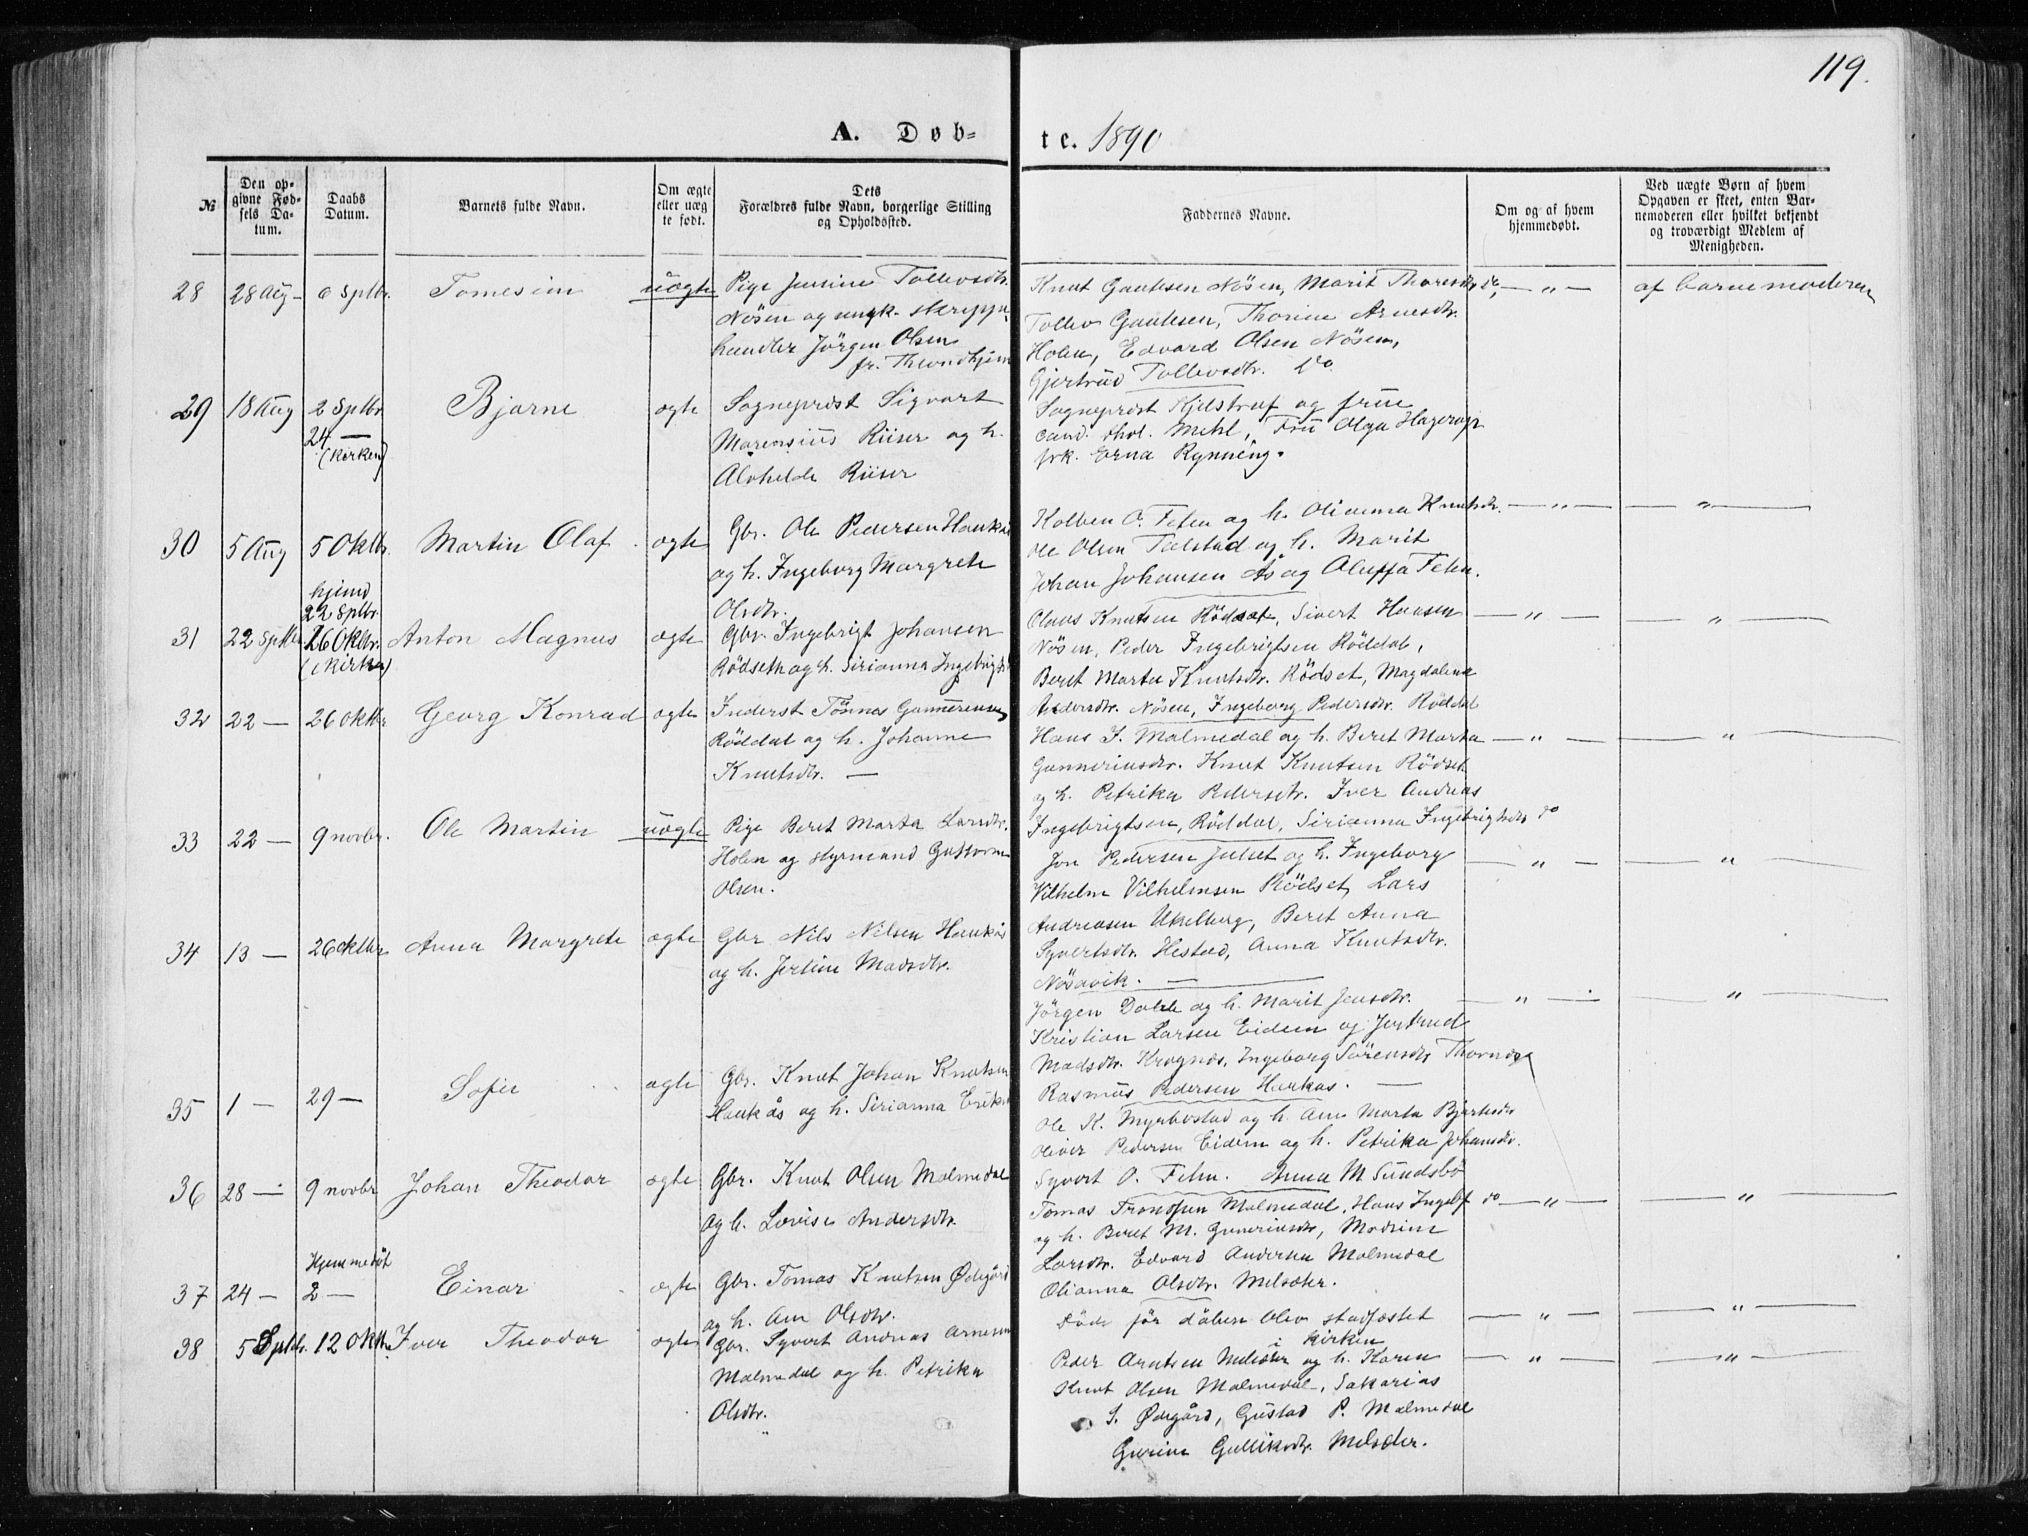 119.
A. Døb-te. 1890
№
Den opgivne Fødsels Datum.
Daabs Datum.
Barnets fulde Navn.
Om ægte eller uægte født.
Dets Forældres fulde Navn, borgerlige Stilling og Opholdssted.
Faddernes Navne.
Om og af hvem hjemmedøbt.
Ved uægte Børn af hvem Opgaven er skeet, enten Barnemoderen eller hvilket bekjendt og troværdigt Medlem af Menigheden.
28 28 Aug — 6 Septbr. Tomesine uægte
Pige Jensine Tollevsdtr.
Nösen og ungk. skreppe
handler Jörgen Olsen
fr. Throndhjem
Knut Gautesen Nösen, Marit Thoresdtr do, — " —
Tollev Gautesen, Thorine Arnesdtr.
Holen, Edvard Olsen Nösen,
Gjertrud Tollevsdtr. do.
af barnemoderen
29 18 Aug 2 Septbr 24 — (kirken) Bjarne ægte
Sogneprest Sigvart
Marensius Riiser og h.
Alvhelde Riiser
Sogneprest Kjelstrup og frue
cand. thol. Mehl, Frü Olga Hagerup
frk. Erna Rynning.
30 5 Aug 5 Oktbr. Martin Olaf ægte
Gbr. Ole Pedersen Haukås
og h. Ingeborg Margrete
Olsdtr.
Kolben O. Fehn og h. Olianna Knutsdr. — " —
Ole Olsen Talstad og h. Marit
Johan Johansen Ås og Oluffa Fehn.
31 22 Septbr hjemd 22 Septbr. 26 Oktbr. (i kirken) Anton Magnus ægte
Gbr. Ingebrigt Johansen
Rödseth og h. Sirianna Ingebrigtsd
Olaus Knutsen Rödset, Sivert Hansen — " —
Nösen, Peder Ingebrigtsen Röddal,
Beret Marta Knutsdtr. Rödset, Magdalena
Andersdtr. Nösen, Ingeborg Pedersdtr. Röddal
32 22 — 26 Oktbr Georg Konrad ægte
Inderst Tönnes Gunnerensen
Röddal og h. Johanne
Knutsdtr. —
Hans I. Malmedal og h. Beret Marta — " —
Gunneriusdtr. Knut Knutsen Rödset
og h. Petrika Pedersdtr. Iver Andreas
Ingebrigtsen, Röddal, Sirianna Ingebrigtsdtr do
33 22 — 9 novbr. Ole Martin uægte
Pige Beret Marta Larsdtr.
Holen og styrmand
Olsen.
Jon Pedersen Julset og h. Ingeborg — " —
Vilhelm Vilhelmsen Rödset, Lars
Andreasen Ukelberg, Beret Anna
Syvertsdtr. Hestad, Anna Knutsdtr.
Nösavik. —
34 13 — 26 oktbr Anna Margrete ægte
Gbr Nils Nilsen Haukås
og h. Jertine Madsdtr.
Jörgen Dalle og h. Marit Jensdtr. — " —
Kristian Larsen Eidem og Jertrud
Madsdtr. Krognæs, Ingeborg Sörensdtr Thornæs
Rasmus Pedersen Haukas. —
35 1 — 29 — Sofie ægte
Gbr. Knut Johan Knutsen
Haukås og h. Sirianna Eriks
Ole K. Myrbostad og h. Ane Marta Bjerkesdtr
Oliver Pedersen Eidem og h. Petrika Johansdtr.
Syvert O. Fehn. Anna M Sundsbö
36 28 — 9 novbr Johan Theodor ægte
Gbr. Knut Olsen Malmedal
og h. Lovise Andersdtr.
Tomas Trondsen Malmedal, Hans Ingebr do — " —
og h. Beret M. Guneriusdtr, Madsine
Larsdtr. Edvard Andersen Malmedal
Olianna Olsdtr. Melsæter.
37 24 — Hjemmedöt 2 — Einar ægte
Gbr. Tomas Knutsen Ødegård
og h. Ane Olsdtr.
Döde för dåben blev stadfæstet — " —
i kirken
38 5 Septbr. 12 Oktb. Iver Theodor ægte
Gbr. Syvert Andreas Arnesen
Malmedal og h. Petrika
Olsdtr.
Peder Arntsen Melsæter og h. Karen — " —
Knut Olsen Malmedal, Sakarias
S. Ødegård, Gustad P. Malmedal
Gurine Gulliksdtr. Melsæter.